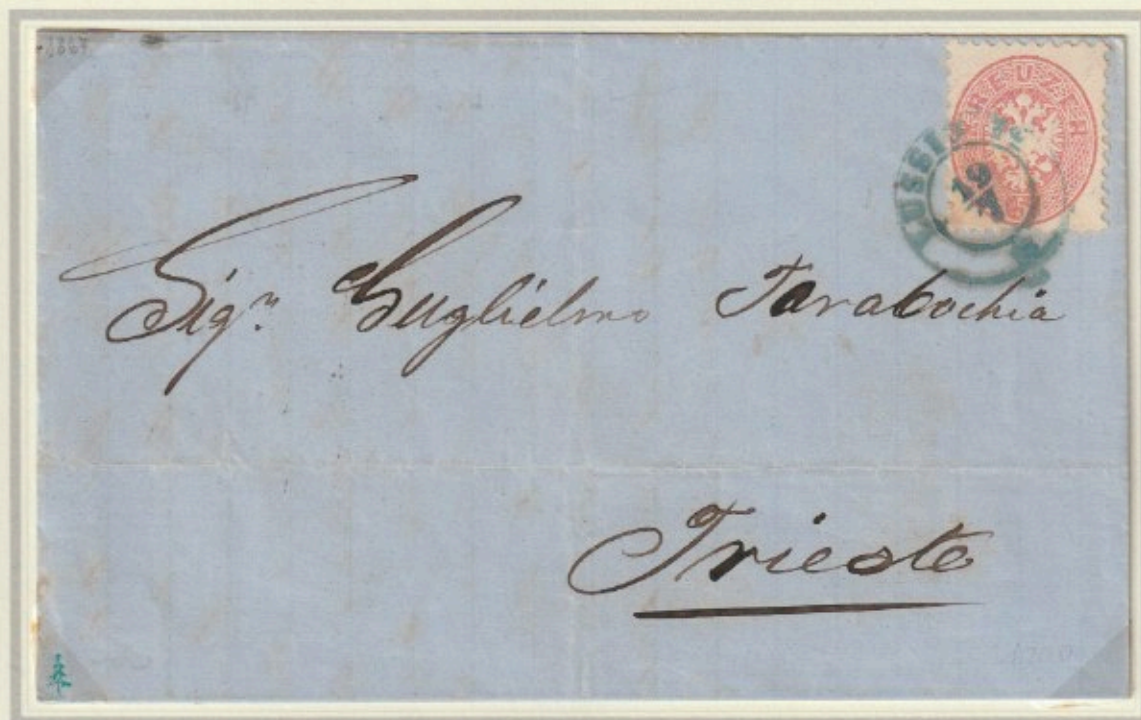 1867
KREUZER
LUSSI
19
Sigr. Guglielmo Tarabochia
Trieste